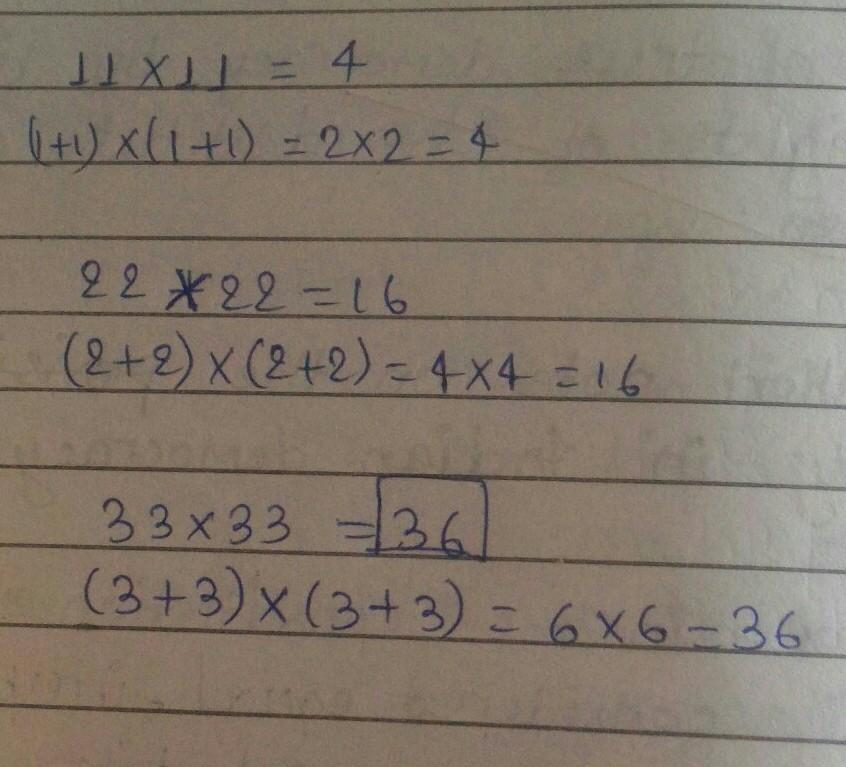 11×11 = 4
(1+1)×(1+1) = 2×2 = 4
22 * 22 = 16
(2+2)×(2+2) = 4×4 = 16
33×33 = 36
(3+3)×(3+3) = 6×6 = 36